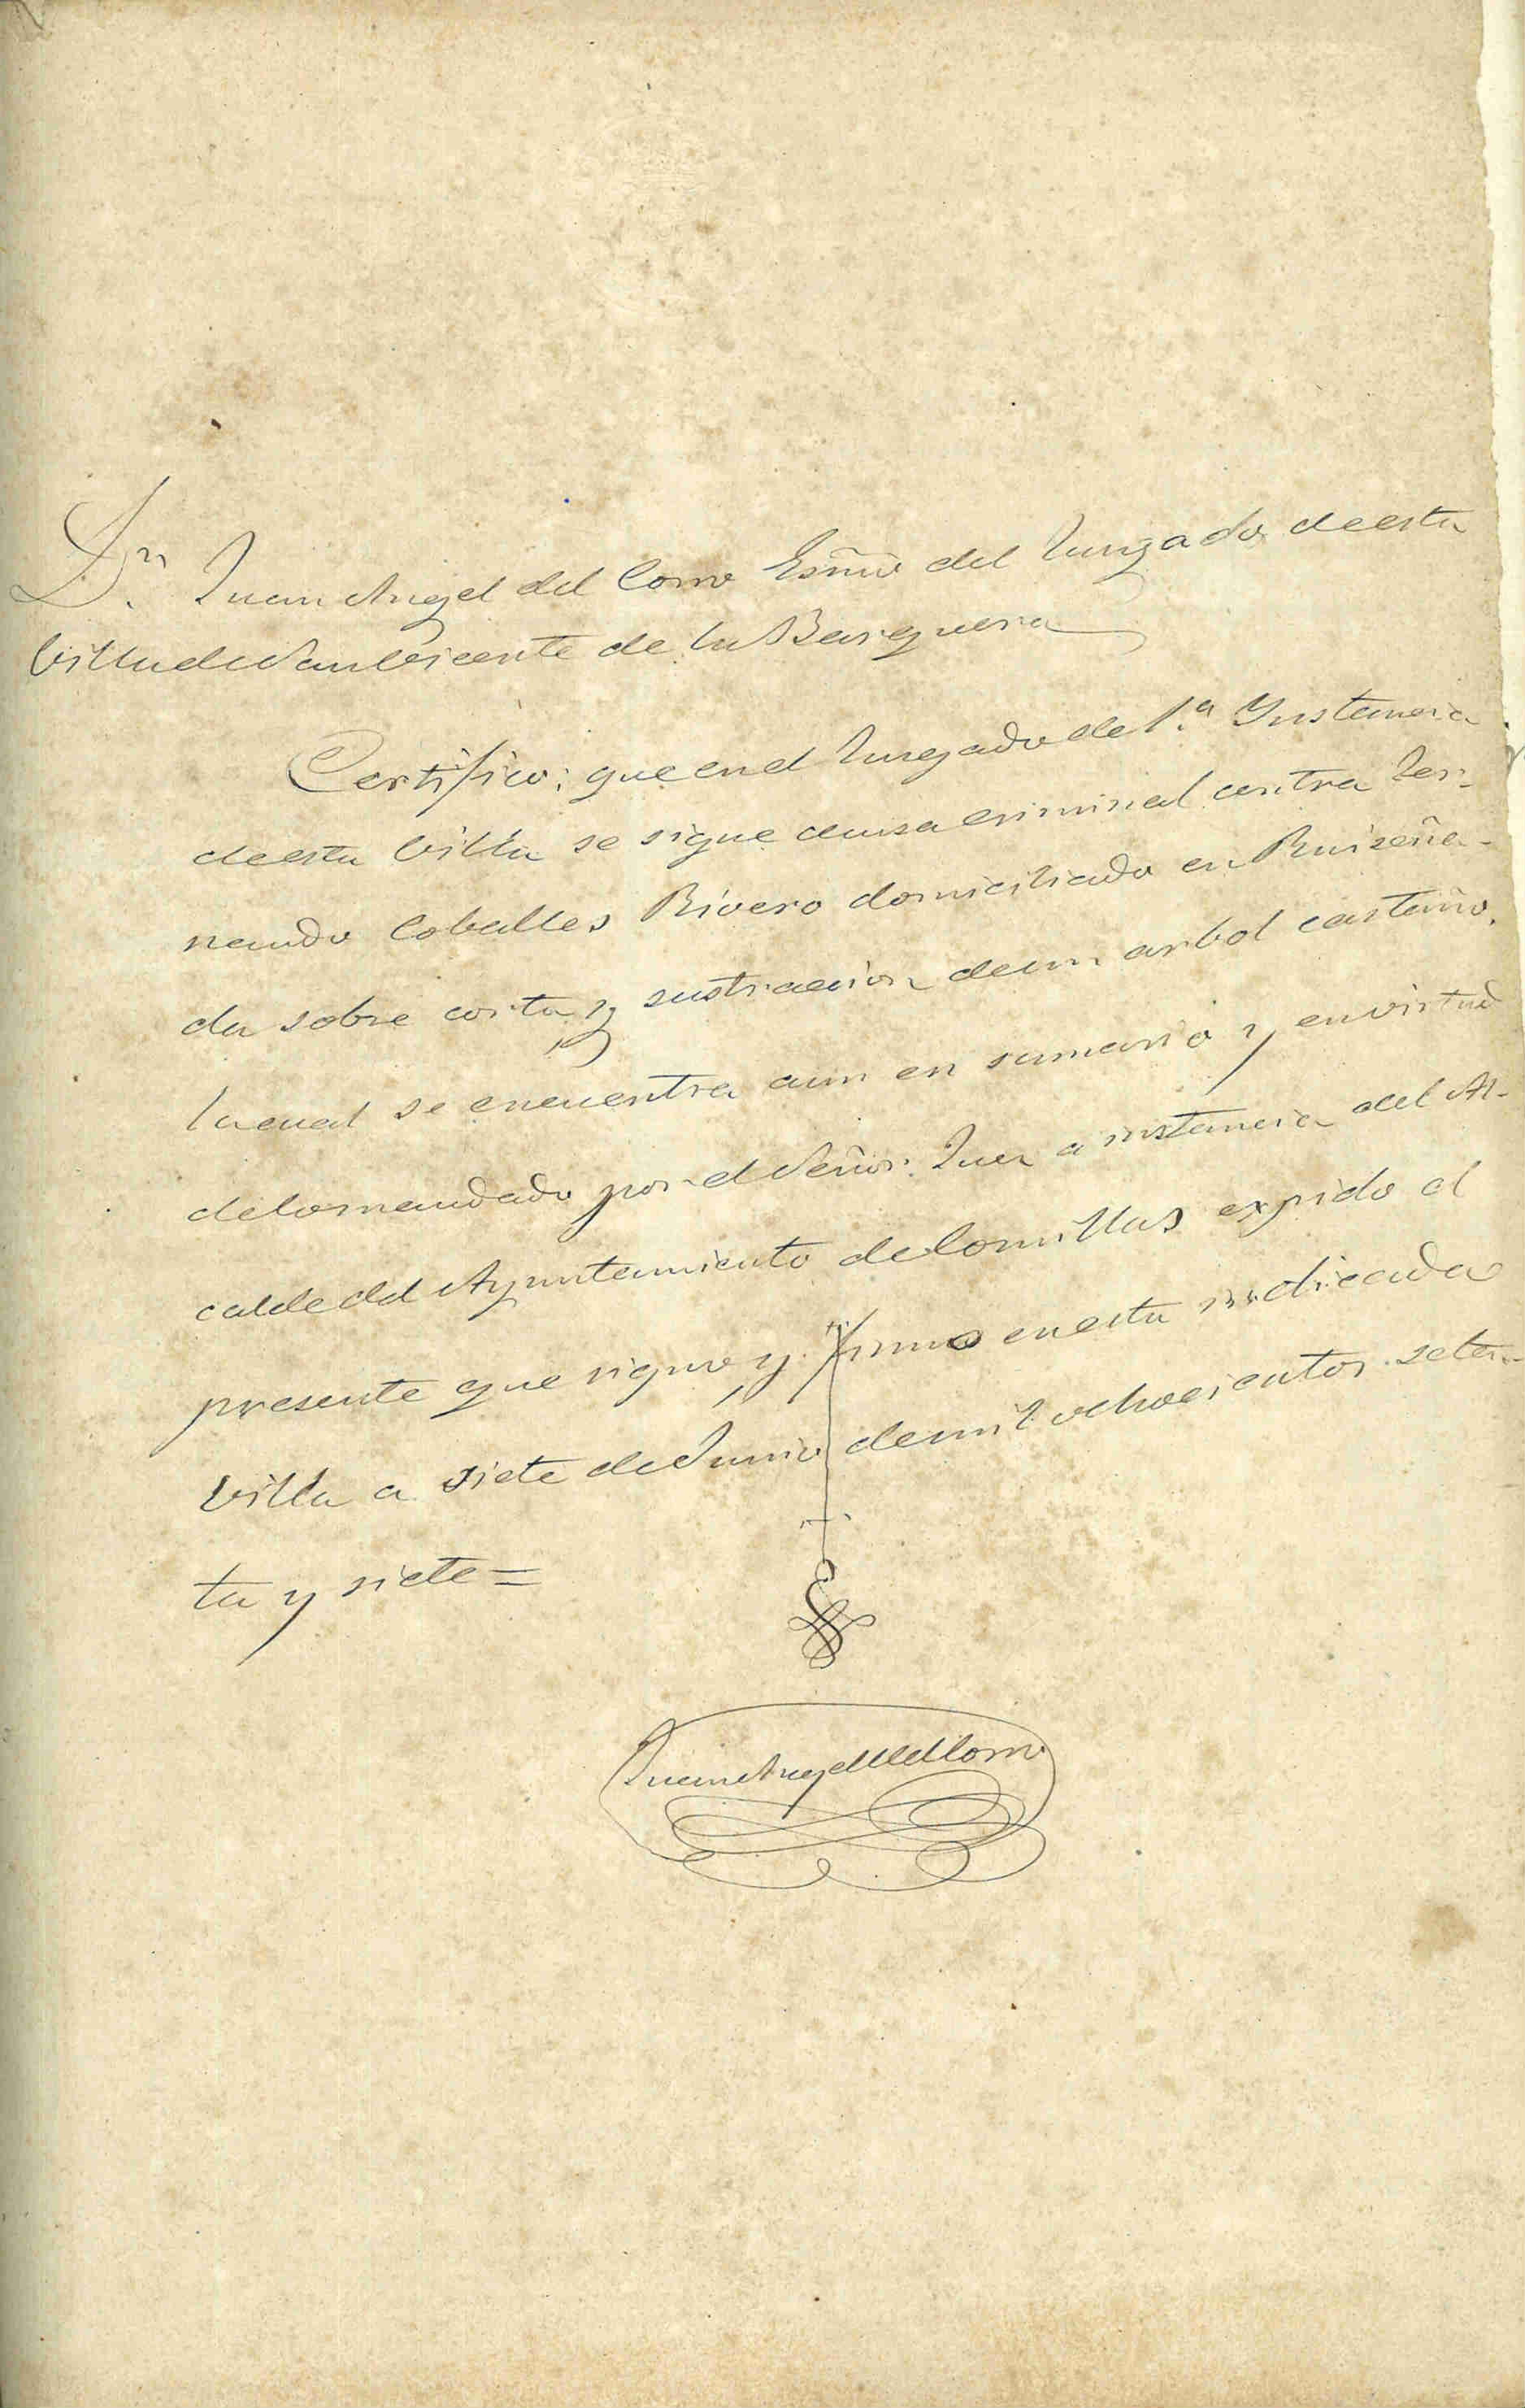 Dn. Juan Angel del Corro Esñno del Juzgado de esta
Villa de San Vicente de la Barquera
Certifico: que en el Juzgado de 1.a Ynstancia
de esta Villa se sigue causa criminal contra Fer-
nando Coballes Rivero domiciliado en Ruiseña-
da sobre corta y sustracion de un arbol castaño,
la cual se encuentra aun en sumario y en virtud
de lo mandado por el Señor Juez a instancia del Al-
calde del Ayuntamiento de Comillas expido el
presente que signo y firmo en esta indicada
Villa a siete de Junio de mil ochocientos seten-
ta y siete=
Juan Angel del Corro